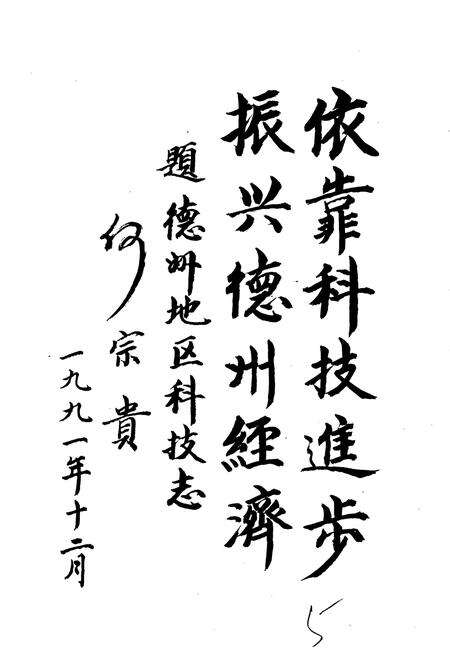 依靠科技進步
振兴德州經濟
題德州地区科技志
何宗貴
一九九一年十二月
5